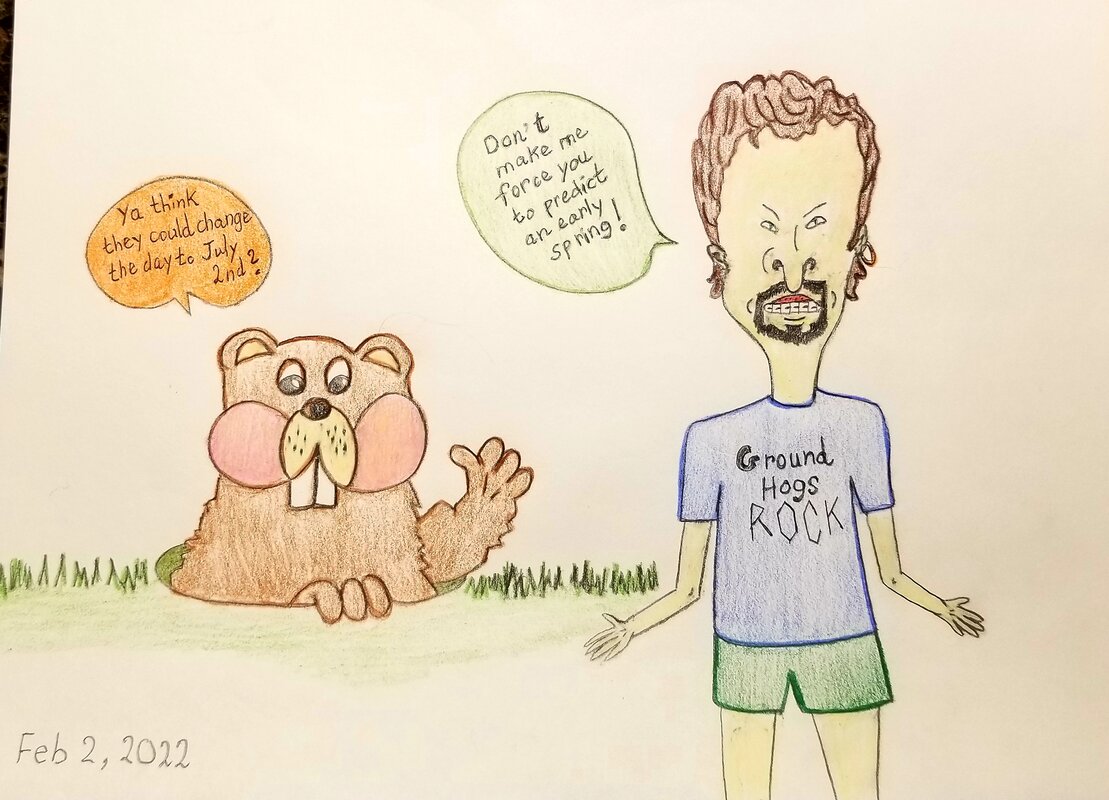 Ya think
they could change
the day to July
2nd?
Don't
make me
force you
to predict
an early
spring!
Ground
Hogs
ROCK
Feb 2, 2022